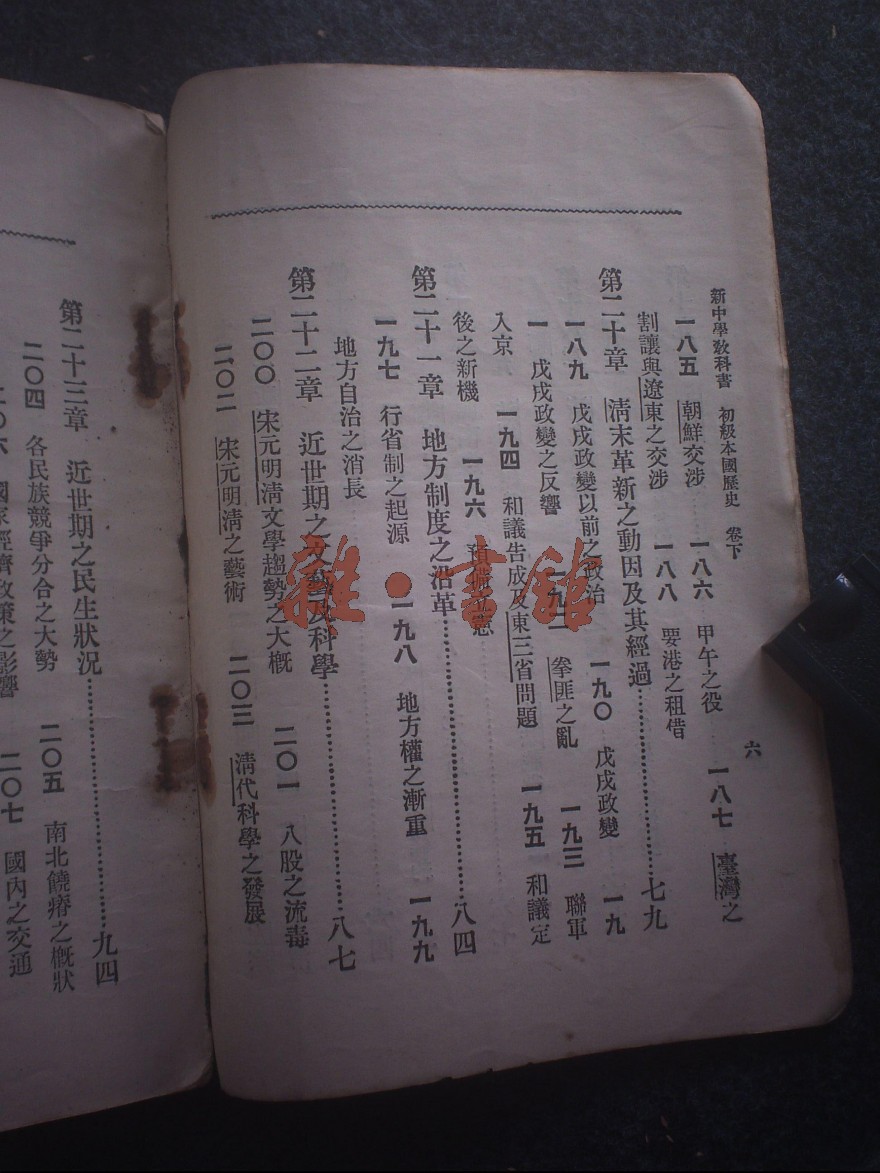 新中學教科書 初級本國歷史 卷下 六
一八五 朝鮮交涉 一八六 甲午之役 一八七 臺灣之
割讓與遼東之交涉 一八八 要港之租借
第二十章 淸末革新之動因及其經過 七九
一八九 戊戌政變以前之政治 一九〇 戊戌政變 一九
一 戊戌政變之反響 一九二 拳匪之亂 一九三 聯軍
入京 一九四 和議告成及東三省問題 一九五 和議定
後之新機 一九六 預備立憲
第二十一章 地方制度之沿革 八四
一九七 行省制之起源 一九八 地方權之漸重 一九九
地方自治之消長
第二十二章 近世期之文藝及科學 八七
二〇〇 宋元明淸文學趨勢之大槪 二〇一 八股之流毒
二〇二 宋元明淸之藝術 二〇三 淸代科學之發展
第二十三章 近世期之民生狀況 九四
二〇四 各民族競爭分合之大勢 二〇五 南北饒瘠之槪狀
二〇六 國家經濟政策之影響 二〇七 國內之交通
雜·書館